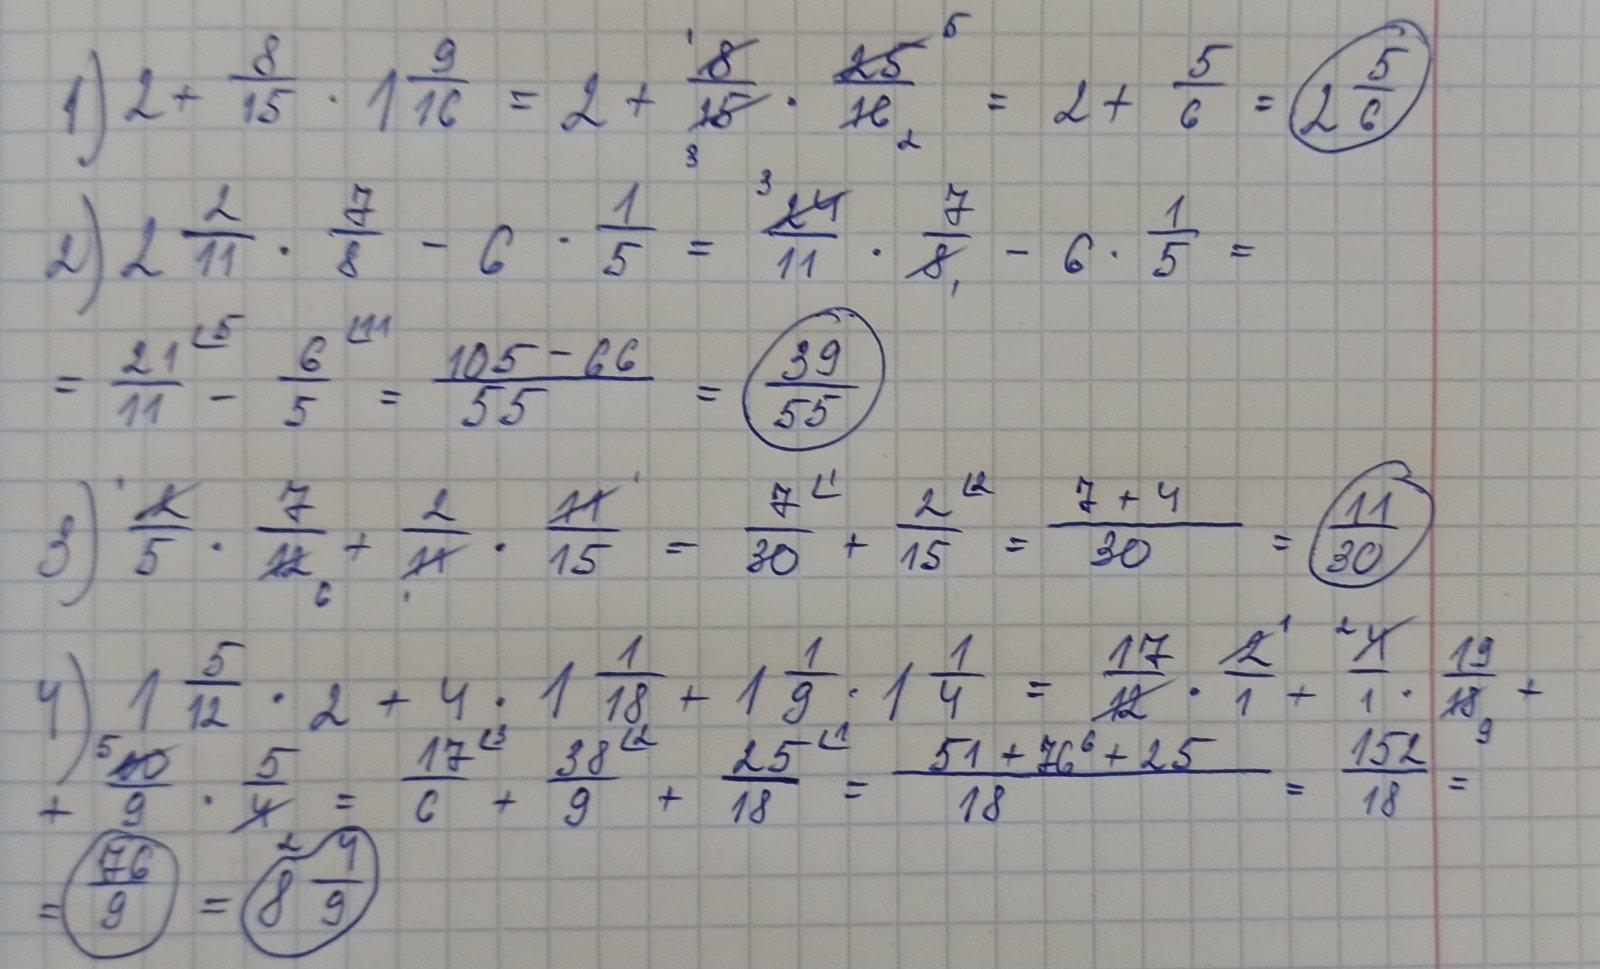 1) 2 + 8/15 · 1 9/16 = 2 + 8/15 · 25/16 = 2 + 5/6 = 2 5/6
2) 2 2/11 · 7/8 - 6 · 1/5 = 24/11 · 7/8 - 6 · 1/5 =
= 21/11 - 6/5 = 105 - 66/55 = 39/55
3) 2/5 · 7/12 + 2/11 · 11/15 = 7/30 + 2/15 = 7 + 4/30 = 11/30
4) 1 5/12 · 2 + 4 · 1 1/18 + 1 1/9 · 1 1/4 = 17/12 · 2/1 + 4/1 · 19/18 +
+ 10/9 · 5/4 = 17/6 + 38/9 + 25/18 = 51 + 76 + 25/18 = 152/18 =
= 76/9 = 8 4/9